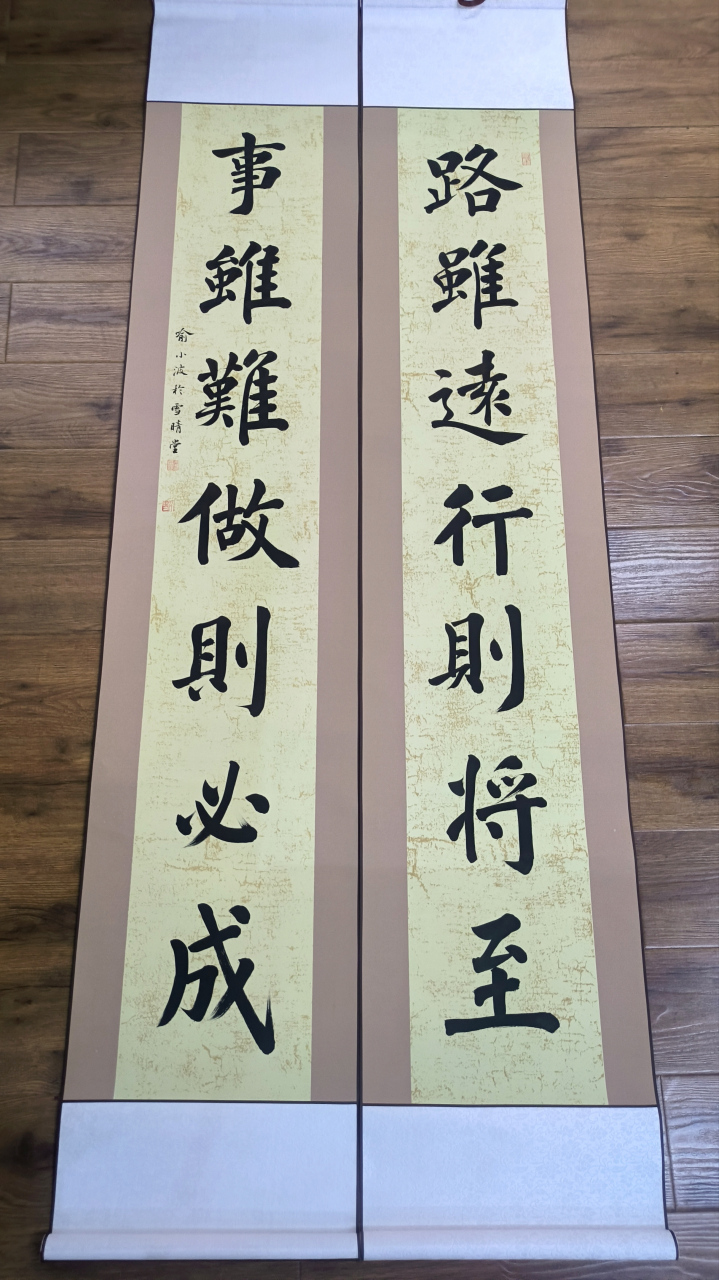 路雖遠行則将至
事雖難做則必成
喻小波於雪晴堂